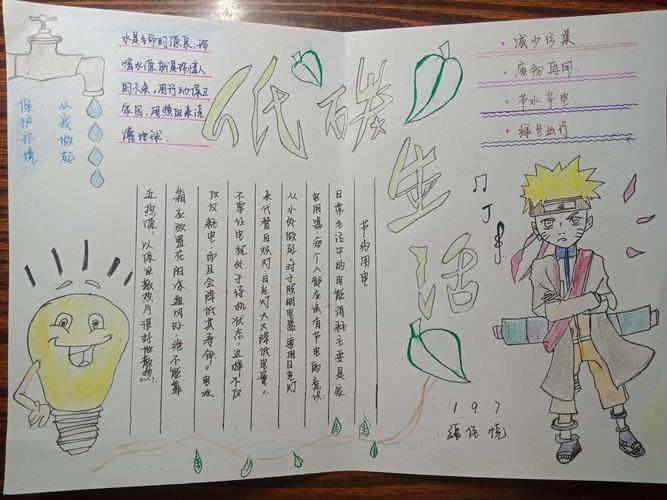 低碳生活
水是生命的源泉,珍
惜水源就是珍惜人
的未来,用行动保卫
家园,用热血来浇
灌地球.
从我做起
保护环境
·减少污染
·废物再用
·节水节电
·绿色出行
节约用电
日常生活中的电能消耗主要是家
电用器,每个人都应该有节电的意识
从小处做起,对于照明电器要用日光灯
来代替白炽灯,日光灯大大降低电量。
不要让电视处于待机状态,这样不仅
仅仅耗电,而且会降低其寿命。电冰
箱应放置在阴凉通风处,绝不能靠
近热源,以保证散热片很好地散热。
197